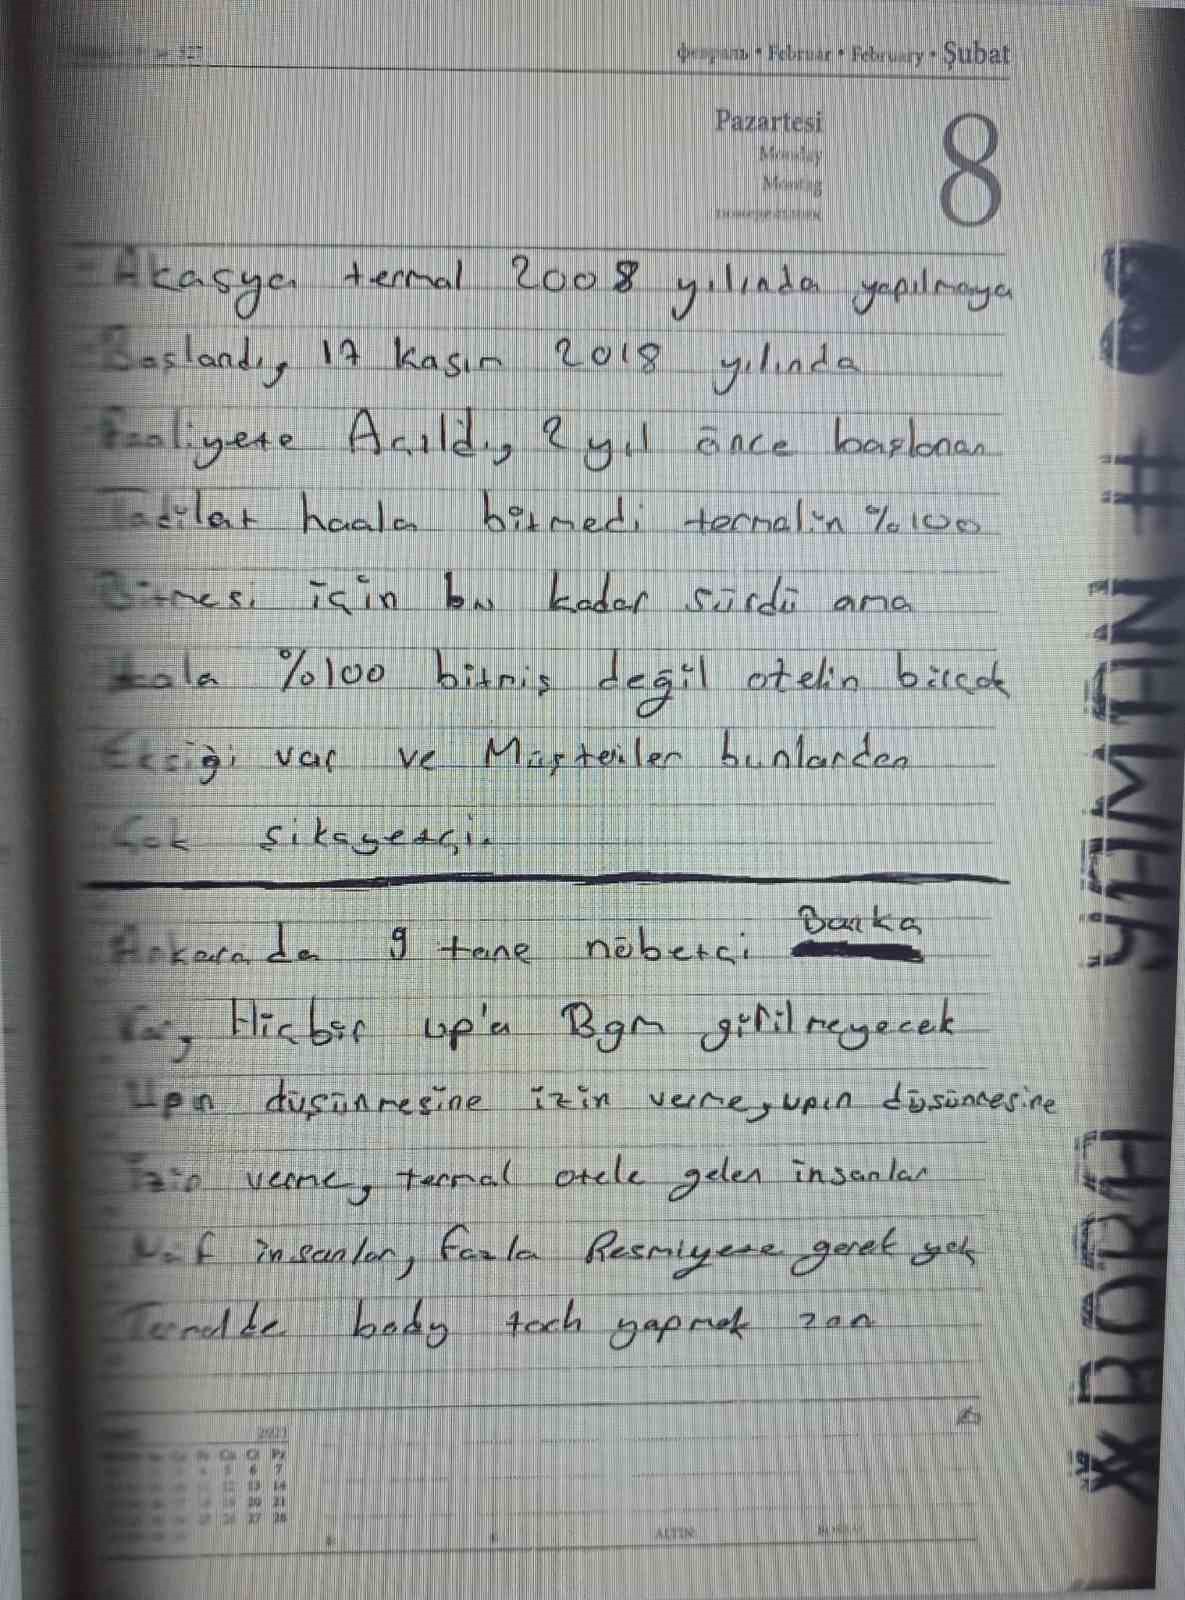 февраль • Februar • February • Şubat
Pazartesi
Monday
Montag
8
Akasya termal 2008 yılında yapılmaya
Baslandı, 17 kasım 2018 yılında
Faaliyete Açıldı, 2 yıl önce başlanan
Tadilat haala bitmedi termalin %100
Bitmesi için bu kadar sürdü ama
Hala %100 bitmiş değil otelin bircok
Eksiği var ve Müşteriler bunlardan
Çok şikayetçi.
Ankarada 9 tane nöbetçi Banka
Var, Hiçbir up'a Bgm girilmeyecek
Upın düşünmesine izin verme, upın düşünmesine
İzin verme, termal otele gelen insanlar
insanlar, fazla Resmiyete gerek yok
Termalde body toch yapmak
2021
5 6 7
12 13 14
19 20 21
26 27 28
ALTIN